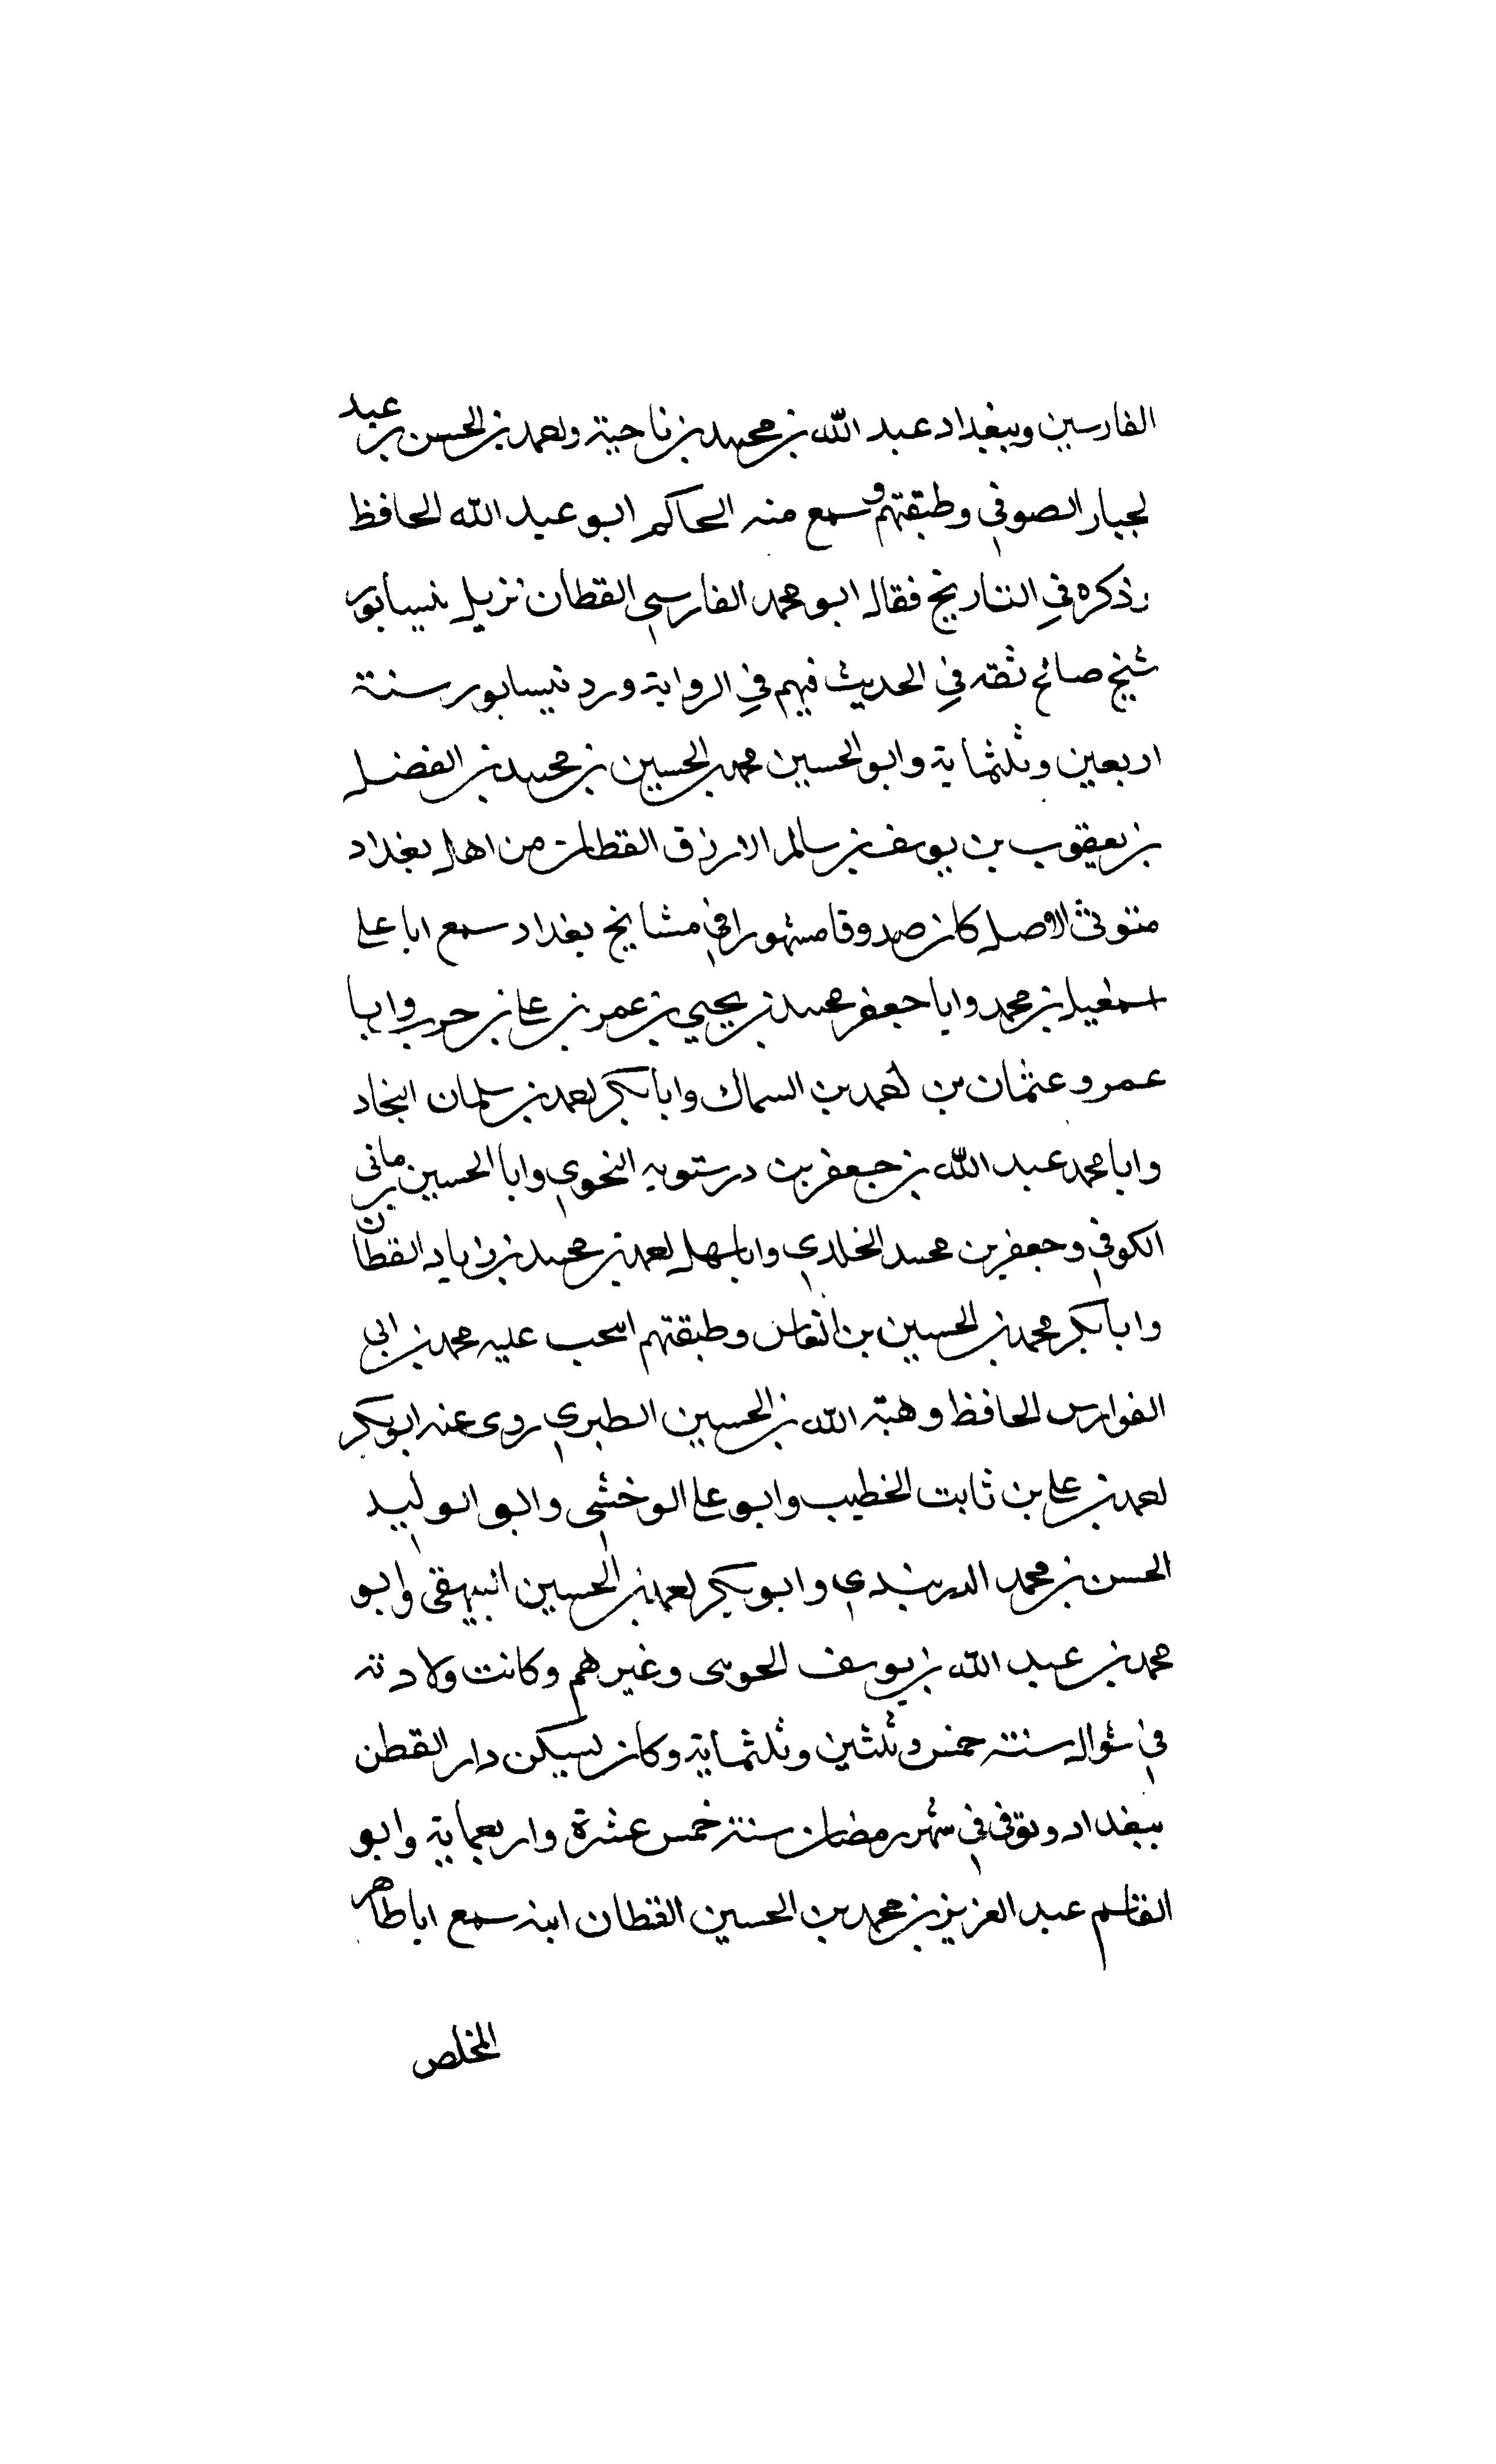 الفارسين وببغداد عبد الله بن محمد بن ناحية واحمد بن الحسن بن عبد
لجبار الصوفي وطبقتهم وسمع منه الحاكم ابو عبد الله الحافظ
وذكره في التاريخ فقال ابو محمد الفارسي القطان نزيل نيسابور
شيخ صالح ثقه في الحديث فهم في الرواية ورد نيسابور سنة
اربعين وثلثماية وابو الحسين محمد بن الحسين بن محمد بن الفضل
بن يعقوب بن يوسف بن سالم الازرق القطان من اهل بغداد
متوثى الاصل كان صدوقا مشهورا في مشايخ بغداد سمع ابا على
اسمعيل بن محمد وابا جعفر محمد بن يحيي بن عمر بن على بن حرب وابا
عمرو عثمان بن احمد بن السماك وابا بكر احمد بن سلمان النجاد
وابا محمد عبد الله بن جعفر بن درستويه النحوي وابا الحسين بن ماتى
الكوفي وجعفر بن محمد الخلدي وابا سهل احمد بن محمد بن زياد القطان
وابا بكر محمد بن الحسين بن النقاش وطبقتهم انتخب عليه محمد بن ابي
الفوارس الحافظ وهبة الله بن الحسين الطبري روى عنه ابو بكر
احمد بن على بن ثابت الخطيب وابو على الوخشى وابو الوليد
الحسن بن محمد الدربندي وابو بكر احمد بن الحسين البيهقى وابو
محمد بن عبد الله بن يوسف الحوسى وغيرهم وكانت ولادته
في شوال سنة خمس وثلثين وثلثماية وكان يسكن دار القطن
ببغداد وتوفى في شهر رمضان سنة خمس عشرة واربعماية وابو
القاسم عبد العزيز بن محمد بن الحسين القطان ابنه سمع ابا طاهر
المخلص